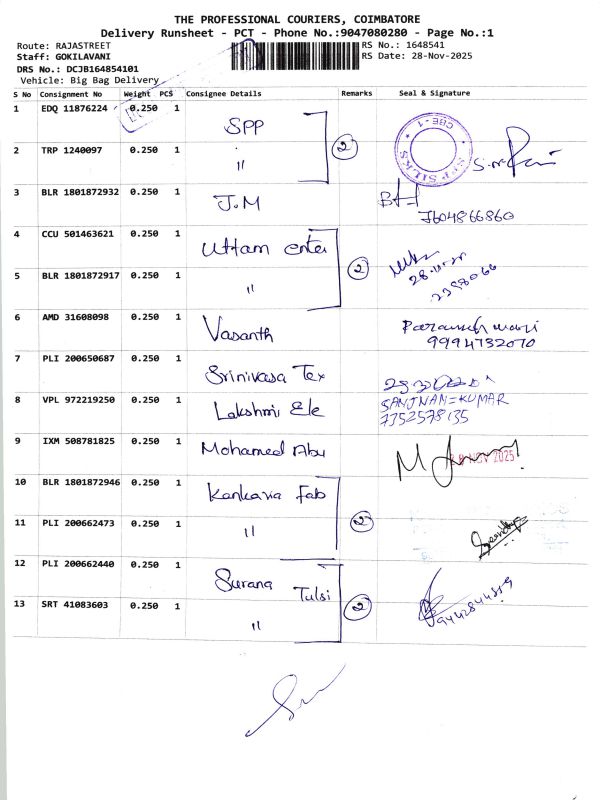 THE PROFESSIONAL COURIERS, COIMBATORE
Delivery Runsheet - PCT - Phone No.:9047080280 - Page No.:1
Route: RAJASTREET
RS No.: 1648541
Staff: GOKILAVANI
RS Date: 28-Nov-2025
DRS No.: DCJB164854101
Vehicle: Big Bag Delivery
S No Consignment No Weight PCS Consignee Details Remarks Seal & Signature
1 EDQ 11876224 0.250 1 SPP
2
CBE-1
SPP SILKS
2 TRP 1240097 0.250 1 "
3 BLR 1801872932 0.250 1 J.M
7604866860
4 CCU 501463621 0.250 1 Uttam enter
2
5 BLR 1801872917 0.250 1 "
6 AMD 31608098 0.250 1 Vasanth
9994732070
7 PLI 200650687 0.250 1 Srinivasa Tex
8 VPL 972219250 0.250 1 Lakshmi Ele
SANJNAN=KUMAR
7352578135
9 IXM 508781825 0.250 1 Mohamed Abu
NOV 2025
10 BLR 1801872946 0.250 1 Kankaria Fab
2
11 PLI 200662473 0.250 1 "
12 PLI 200662440 0.250 1 Surana Tulsi
2
13 SRT 41083603 0.250 1 "